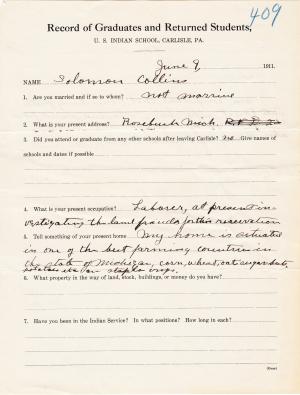 409
Record of Graduates and Returned Students,
U. S. INDIAN SCHOOL, CARLISLE, PA.
June 9 1911.
NAME Solomon Collins
1. Are you married and if so to whom? not marrine
2. What is your present address? Rosebush Mich.
3. Did you attend or graduate from any other schools after leaving Carlisle? Give names of
schools and dates if possible
4. What is your present occupation? Laborer, at present in
vestigating the land frauds for this reservation
5. Tell something of your present home My home is situated
in one of the best farming countries in
the state of Michigan, corn, wheat, oats, sugar beets,
potatoes staple crops.
6. What property in the way of land, stock, buildings, or money do you have?
7. Have you been in the Indian Service? In what positions? How long in each?
(Over)